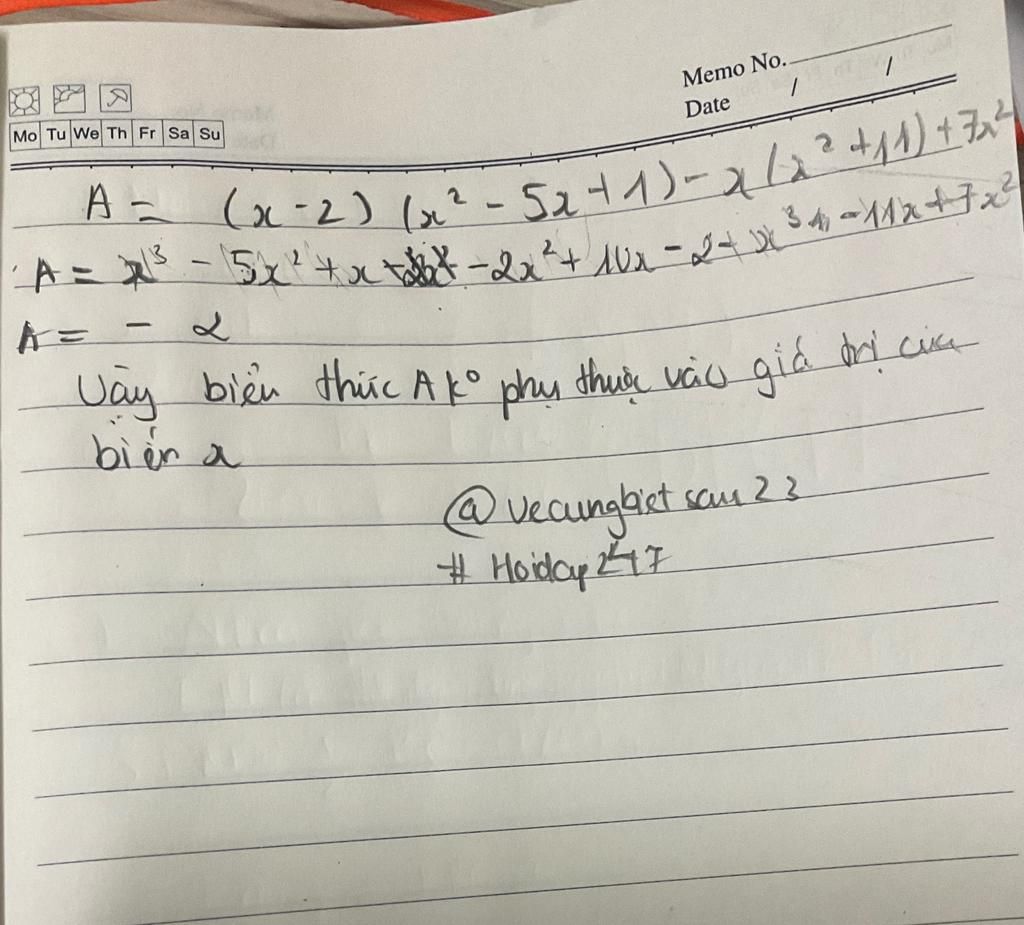 Memo No.
Date / /
Mo Tu We Th Fr Sa Su
A = (x - 2) (x² - 5x + 1) - x (x² + 11) + 7x²
A = x³ - 5x² + x - 2x² + 10x - 2 - x³ - 11x + 7x²
A = - 2
Vậy biểu thức A ko phụ thuộc vào giá trị của
biến x
@vecungbietsau23
# Hoidap247